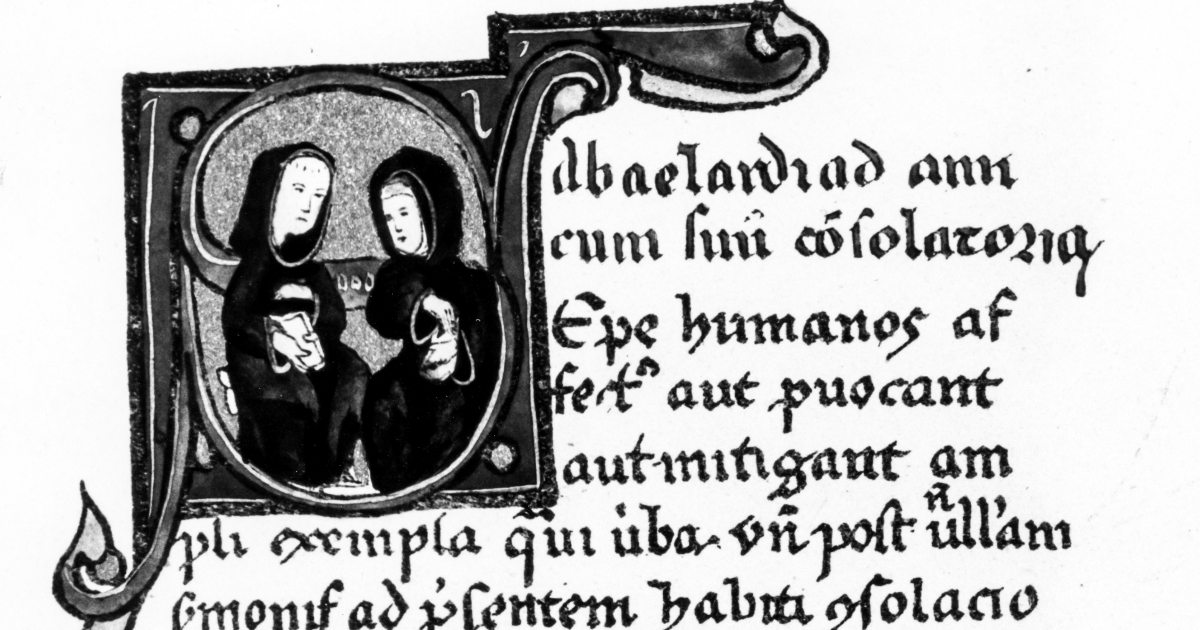 Abaelardi ad ami
cum suū cōsolatoria
Epe humanos af
fectꝰ aut ꝓuocant
aut mitigant am
pli exempla q̄ u̇ba. vn̄ post n̄ullam
ẜmonis ad p̓sentem habiti ꝯsolacio